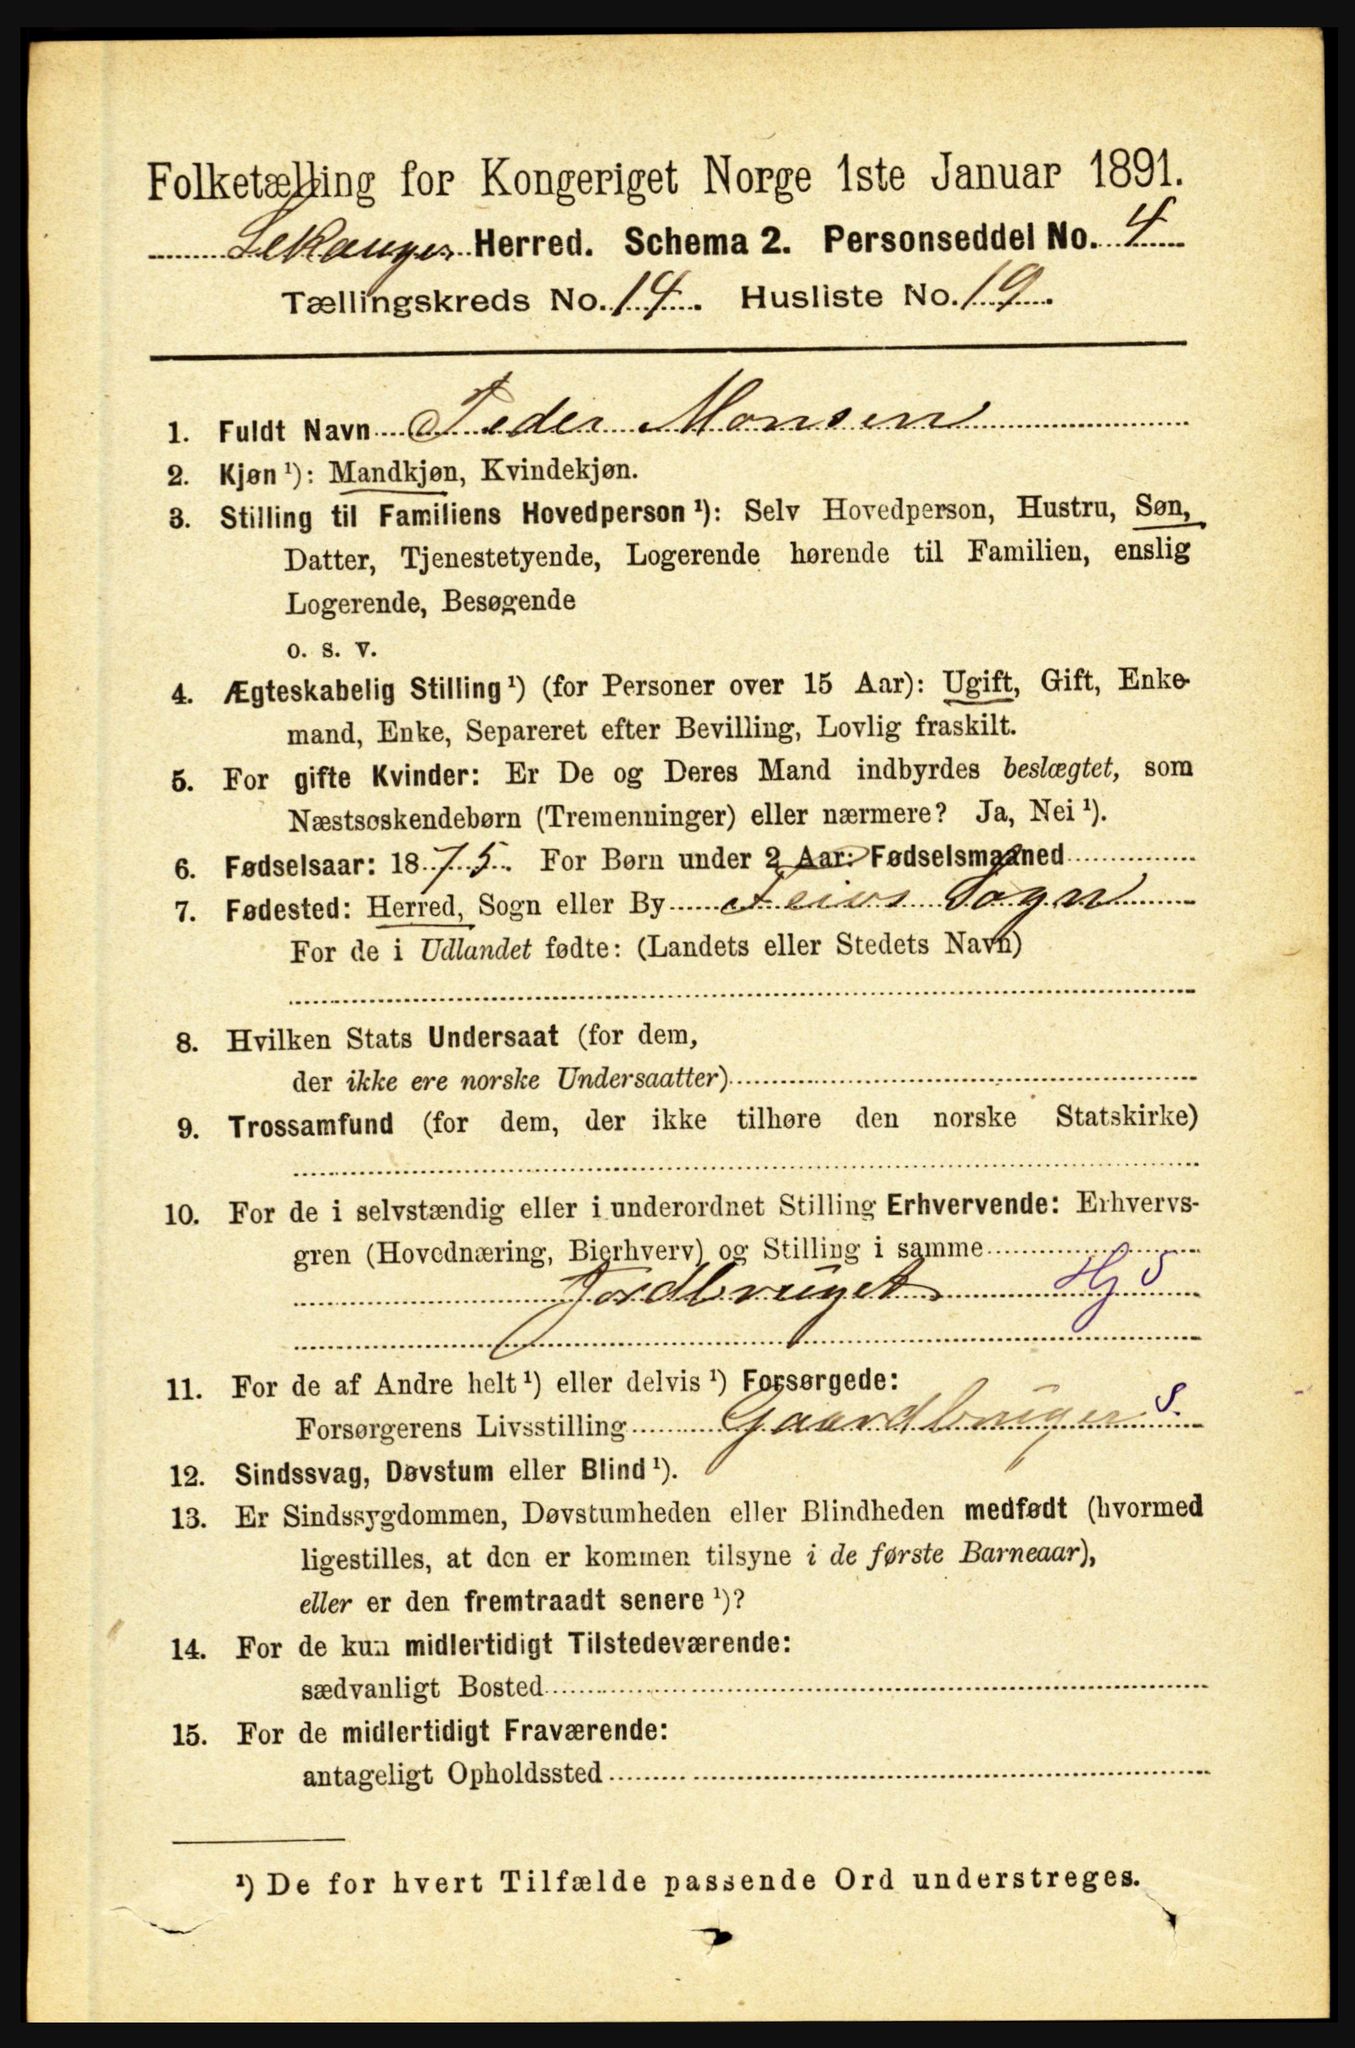 Folketælling for Kongeriget Norge 1ste Januar 1891.
Lekanger Herred. Schema 2. Personseddel No. 4
Tællingskreds No. 14. Husliste No. 19.
1. Fuldt Navn Peder Monsen
2. Kjøn¹): Mandkjøn, Kvindekjøn.
3. Stilling til Familiens Hovedperson¹): Selv Hovedperson, Hustru, Søn,
Datter, Tjenestetyende, Logerende hørende til Familien, enslig
Logerende, Besøgende
o. s. v.
4. Ægteskabelig Stilling¹) (for Personer over 15 Aar): Ugift, Gift, Enke-
mand, Enke, Separeret efter Bevilling, Lovlig fraskilt.
5. For gifte Kvinder: Er De og Deres Mand indbyrdes beslægtet, som
Næstsøskendebørn (Tremenninger) eller nærmere? Ja, Nei¹).
6. Fødselsaar: 1875. For Børn under 2 Aar: Fødselsmaaned
7. Fødested: Herred, Sogn eller By Feios Sogn
For de i Udlandet fødte: (Landets eller Stedets Navn)
8. Hvilken Stats Undersaat (for dem,
der ikke ere norske Undersaatter)
9. Trossamfund (for dem, der ikke tilhøre den norske Statskirke)
10. For de i selvstændig eller i underordnet Stilling Erhvervende: Erhvervs-
gren (Hovednæring, Bierhverv) og Stilling i samme
Jordbruget Hj S
11. For de af Andre helt¹) eller delvis¹) Forsørgede:
Forsørgerens Livsstilling Gaardbruger S.
12. Sindssvag, Døvstum eller Blind¹).
13. Er Sindssygdommen, Døvstumheden eller Blindheden medfødt (hvormed
ligestilles, at den er kommen tilsyne i de første Barneaar),
eller er den fremtraadt senere¹)?
14. For de kun midlertidigt Tilstedeværende:
sædvanligt Bosted
15. For de midlertidigt Fraværende:
antageligt Opholdssted
¹) De for hvert Tilfælde passende Ord understreges.